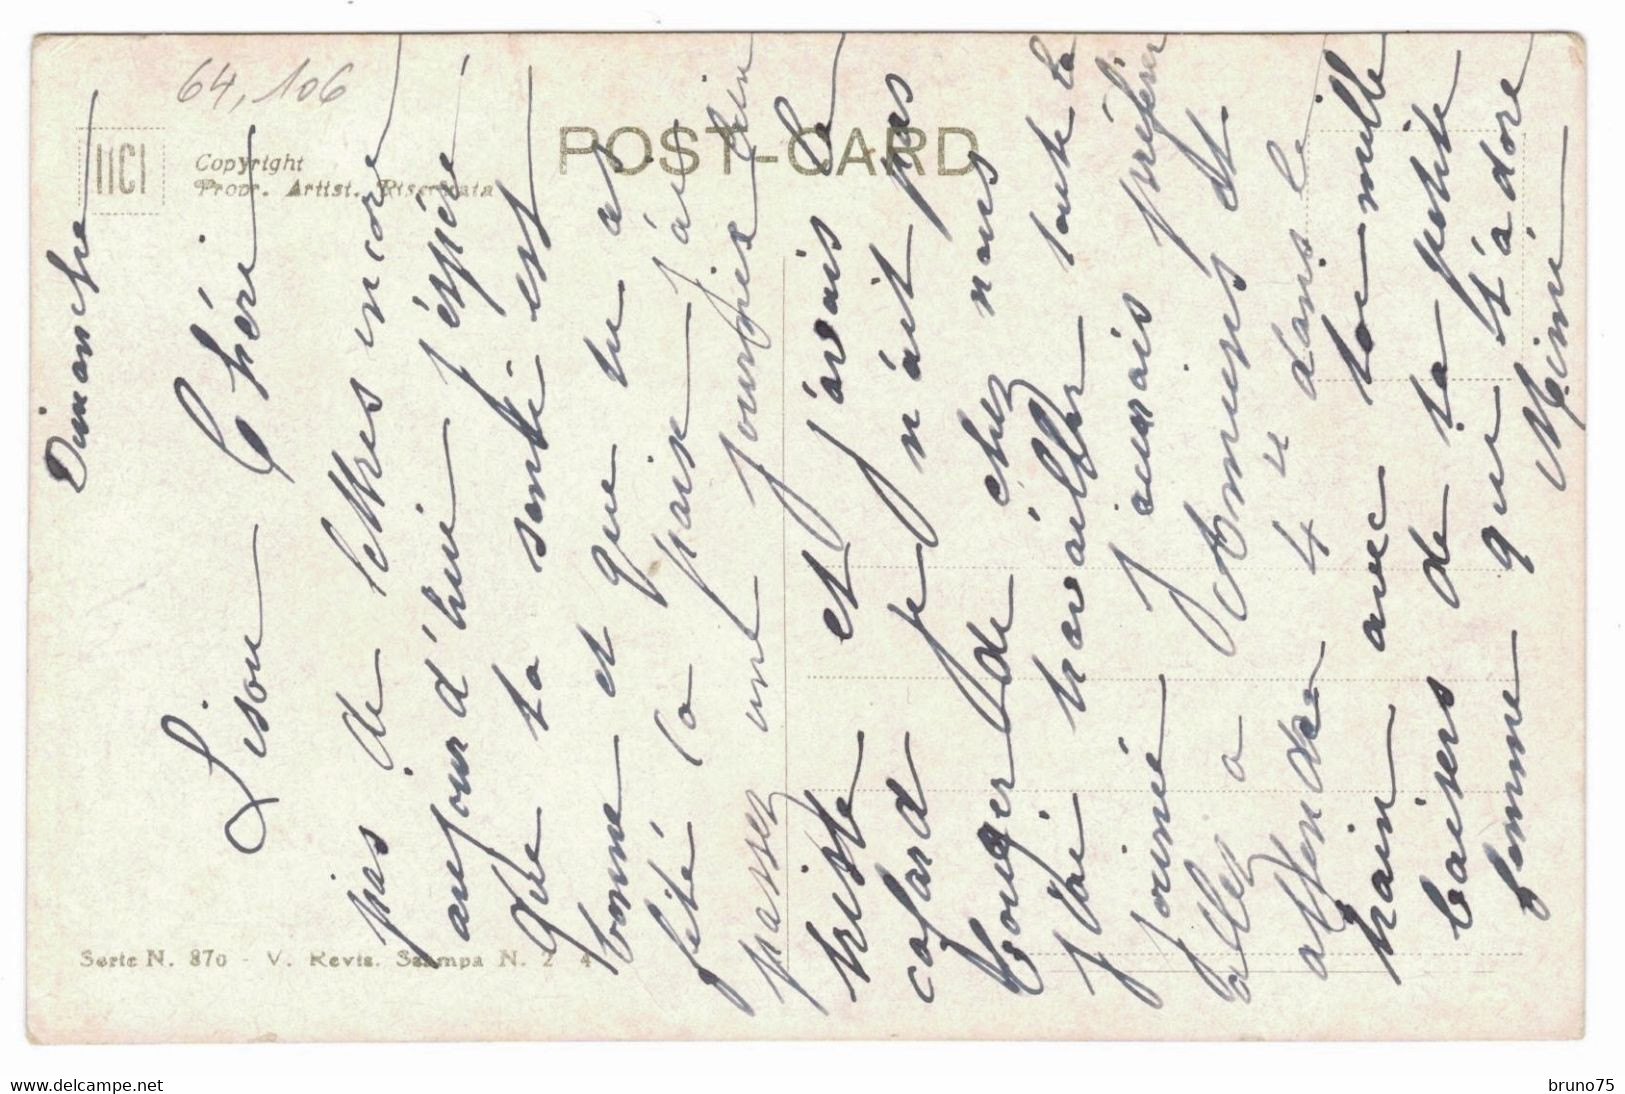 64,106
IICI
Copyright
Propr. Artist. Riservata
POST-CARD
Serie N. 870 - V. Revis. Stampa N. 2 4
Dimanche
Lison Chéri
pas de lettres encore
aujourd'hui j'éspéré
que ta santé est
bonne et que tu as
fêté la paix j'ai
passez une journée bien
triste et j'avais le
cafard je n'ait pas
bouger de chez nous
j'ai travailler toute la
journé j'aurais préférer
allez a Amiens et
attendre 4 4 dans le
train avec toi mille
baisers de ta petite
femme qui t'adore
Mimi
www.delcampe.net
bruno75